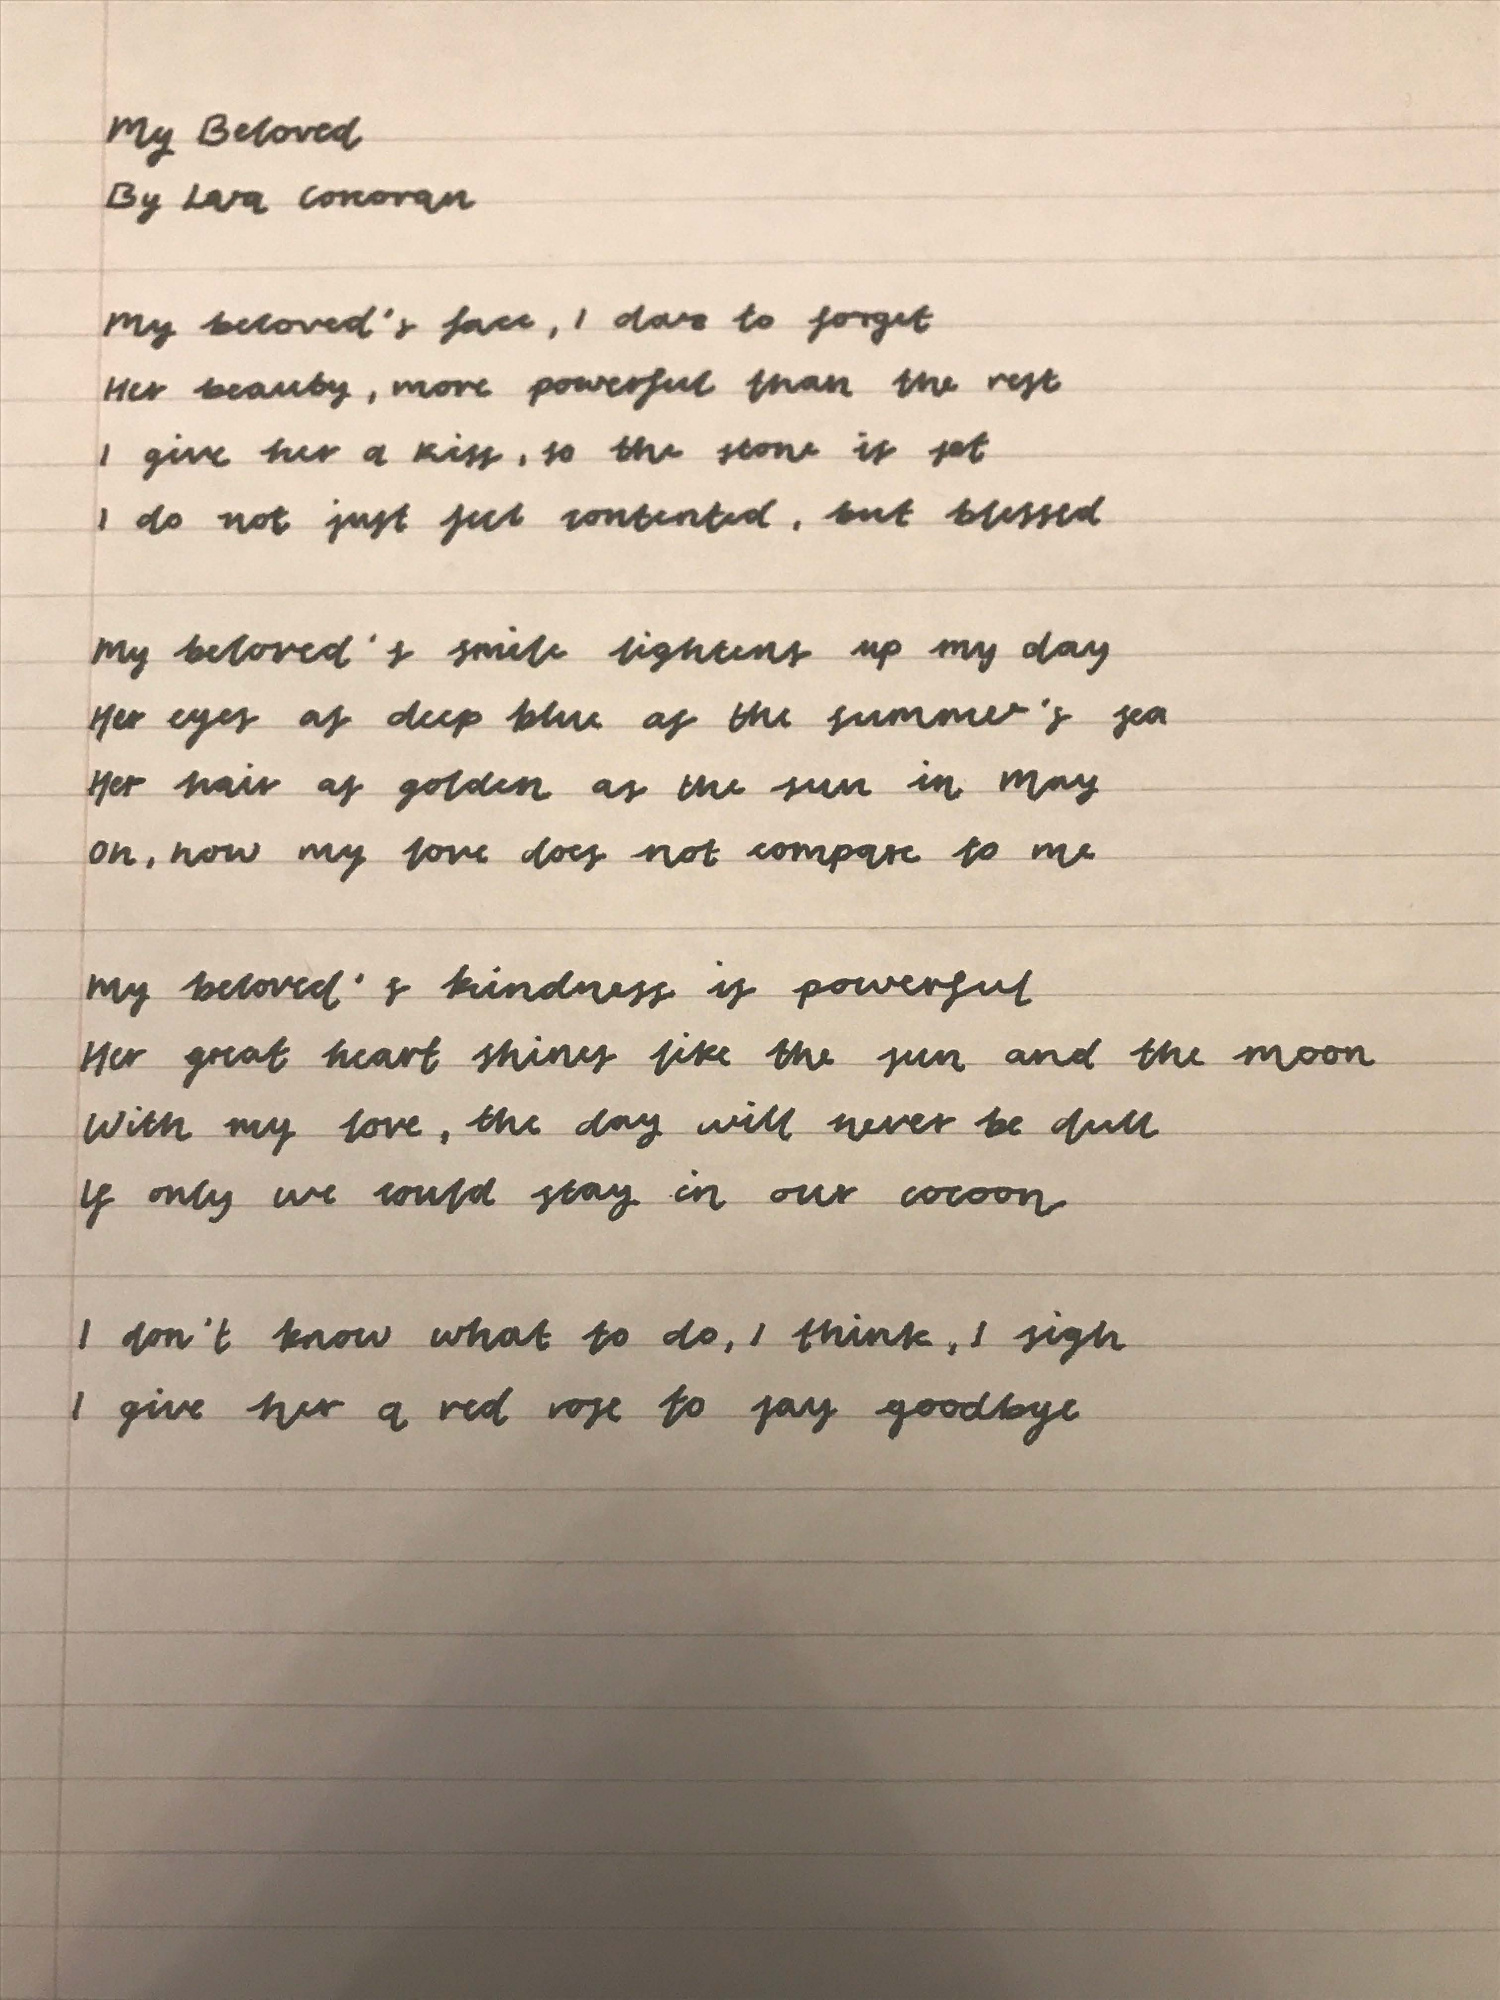 My Beloved
By Lara Corcoran
My beloved's face, I dare to forget
Her beauty, more powerful than the rest
I give her a kiss, so the stone is set
I do not just feel contented, but blessed
My beloved's smile lightens up my day
Her eyes as deep blue as the summer's sea
Her hair as golden as the sun in May
Oh, how my love does not compare to me
My beloved's kindness is powerful
Her great heart shines like the sun and the moon
With my love, the day will never be dull
If only we could stay in our cocoon
I don't know what to do, I think, I sigh
I give her a red rose to say goodbye